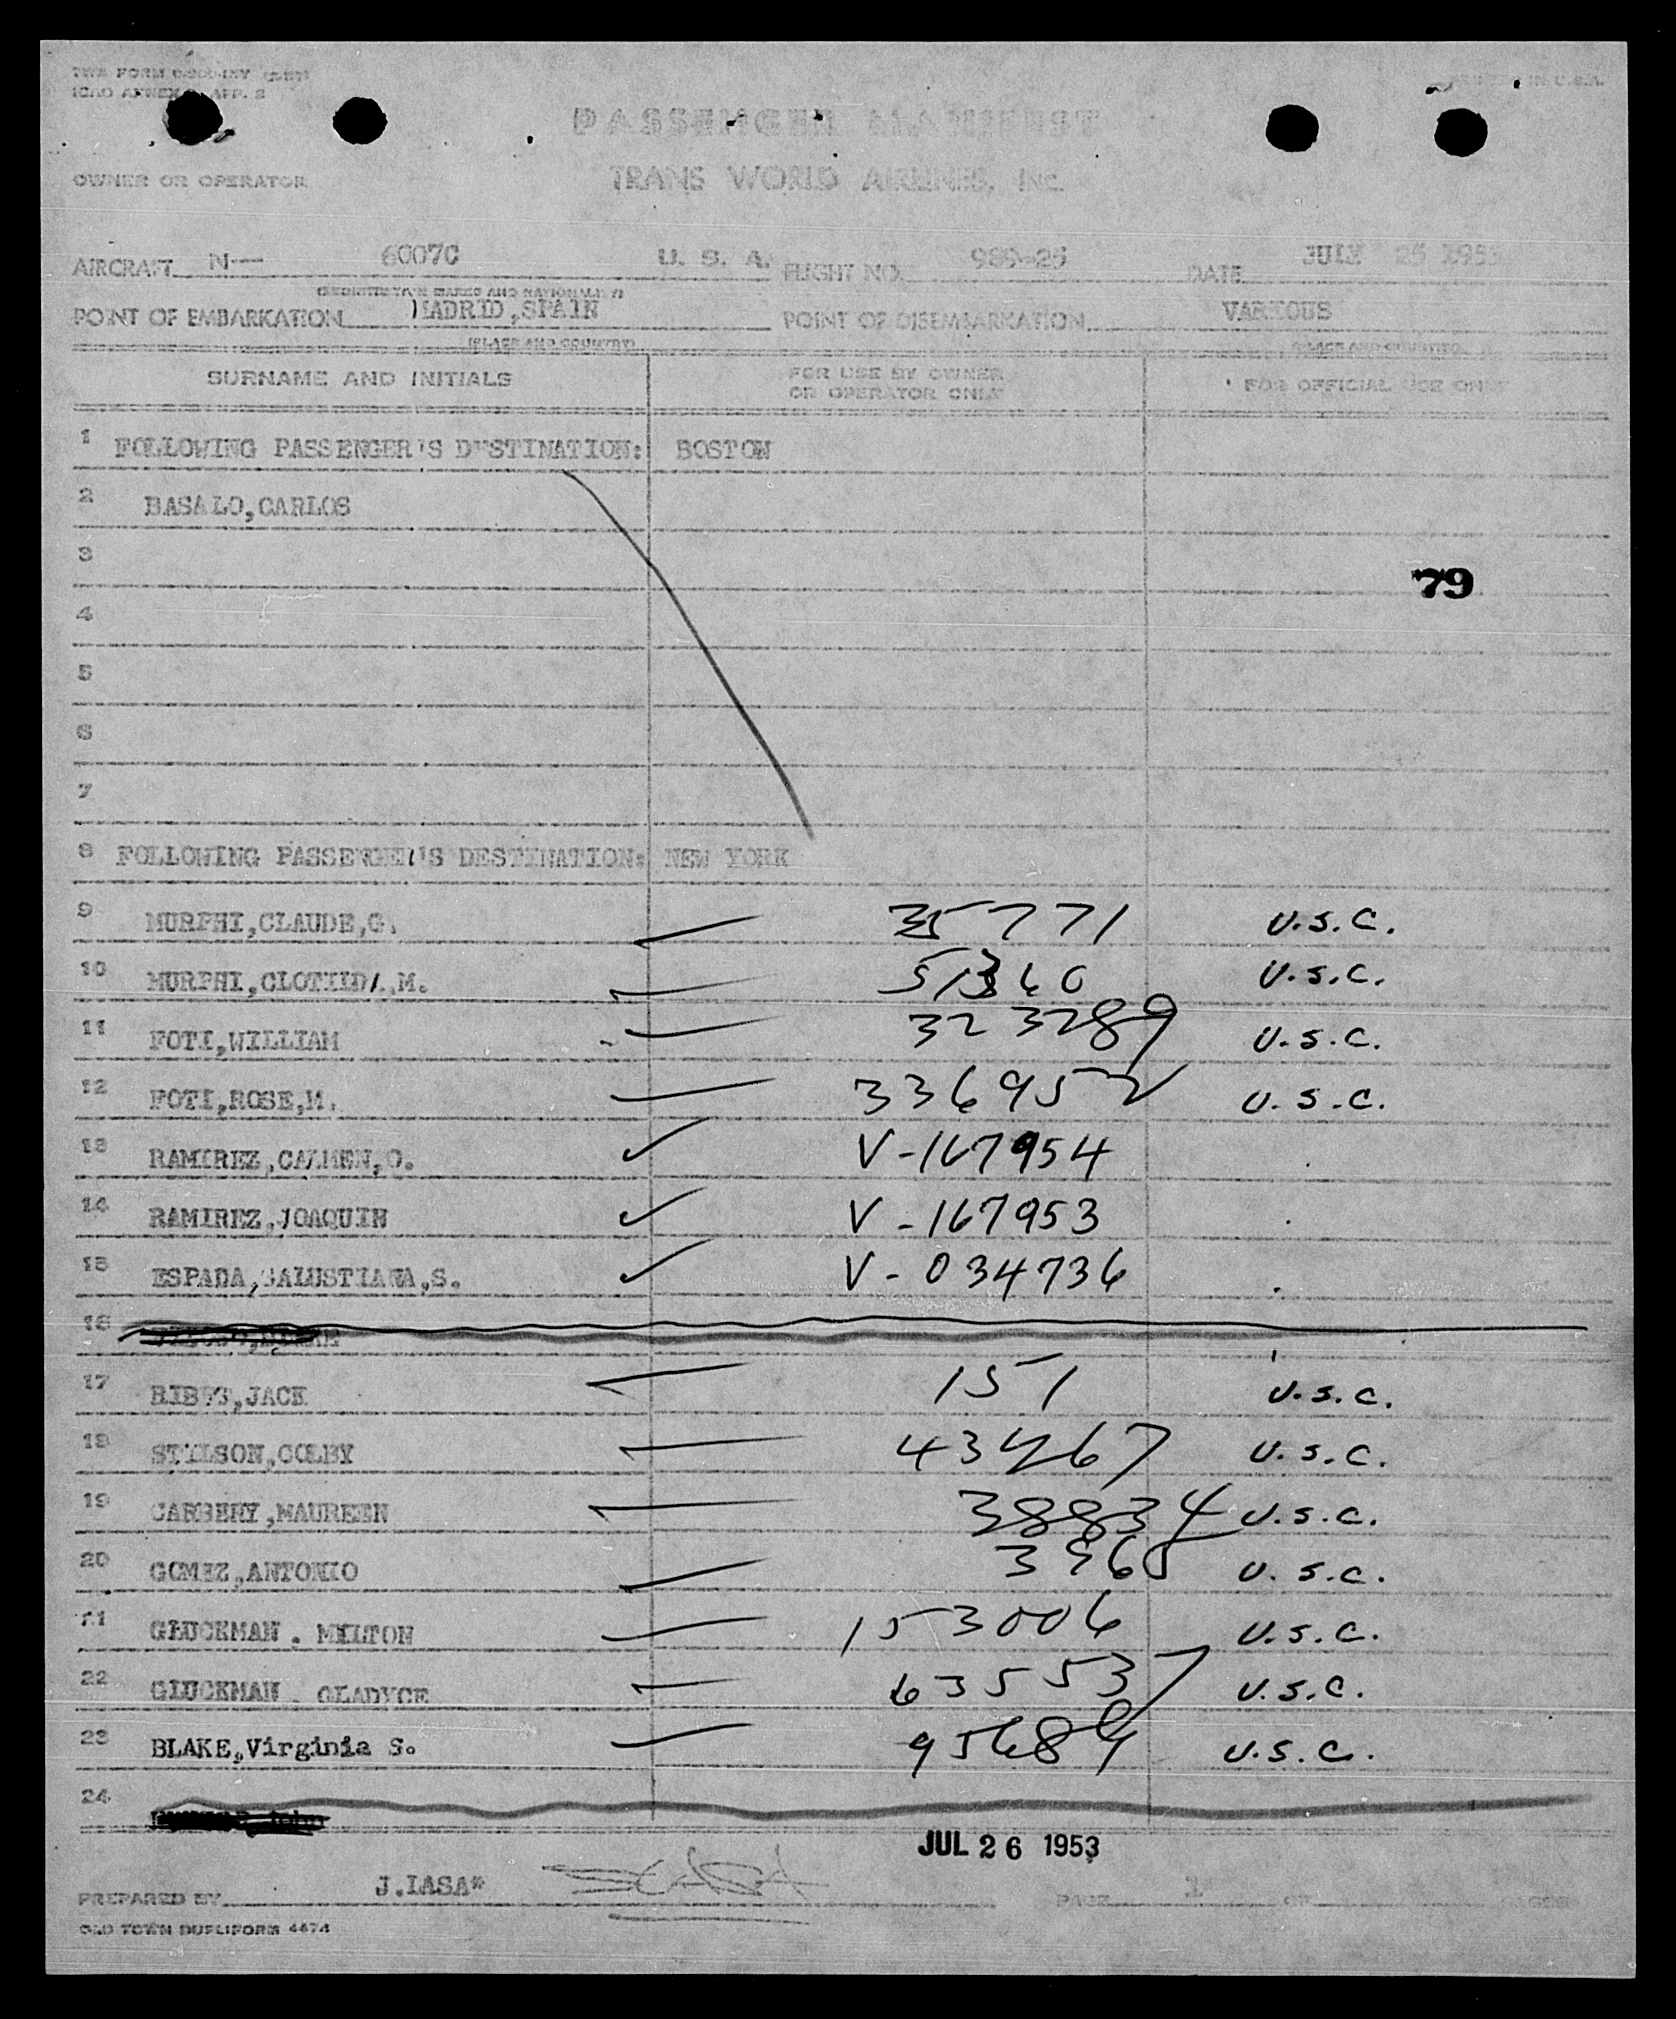 ICAO ANNEX 9 APP. 2
PRINTED IN U.S.A.
PASSENGER MANIFEST
OWNER OR OPERATOR
TRANS WORLD AIRLINES, INC.
AIRCRAFT N— 6007C U. S. A. FLIGHT NO. DATE JULY 25 1953
POINT OF EMBARKATION MADRID,SPAIN POINT OF DISEMBARKATION VARIOUS
(PLACE AND COUNTRY) (PLACE AND COUNTRY)
SURNAME AND INITIALS FOR USE BY OWNER OR OPERATOR ONLY FOR OFFICIAL USE ONLY
1 FOLLOWING PASSENGER'S DESTINATION: BOSTON
2 BASALO,CARLOS
3
79
4
5
6
7
8 FOLLOWING PASSENGER'S DESTINATION: NEW YORK
9 MURPHI,CLAUDE,G. 35771 U.S.C.
10 MURPHI, M. 51360 U.S.C.
11 FOTI,WILLIAM 323289 U.S.C.
12 FOTI,ROSE,M. 336952 U.S.C.
13 RAMIREZ,CARMEN,O. V-167954
14 RAMIREZ,JOAQUIN V-167953
15 ESPADA,SALUSTIANA,S. V-034736
16
17 JACK 151 U.S.C.
18 STILSON,COLBY 43467 U.S.C.
19 CARBERY,MAUREEN 38834 U.S.C.
20 GOMEZ,ANTONIO U.S.C.
21 GLUCKMAN. MILTON 153006 U.S.C.
22 GLUCKMAN. GLADYCE 635537 U.S.C.
23 BLAKE,Virginia S. 95689 U.S.C.
24
JUL 26 1953
PREPARED BY J.IASA* PAGE 1 OF PAGES
OLD TOWN DUPLIFORM 4474